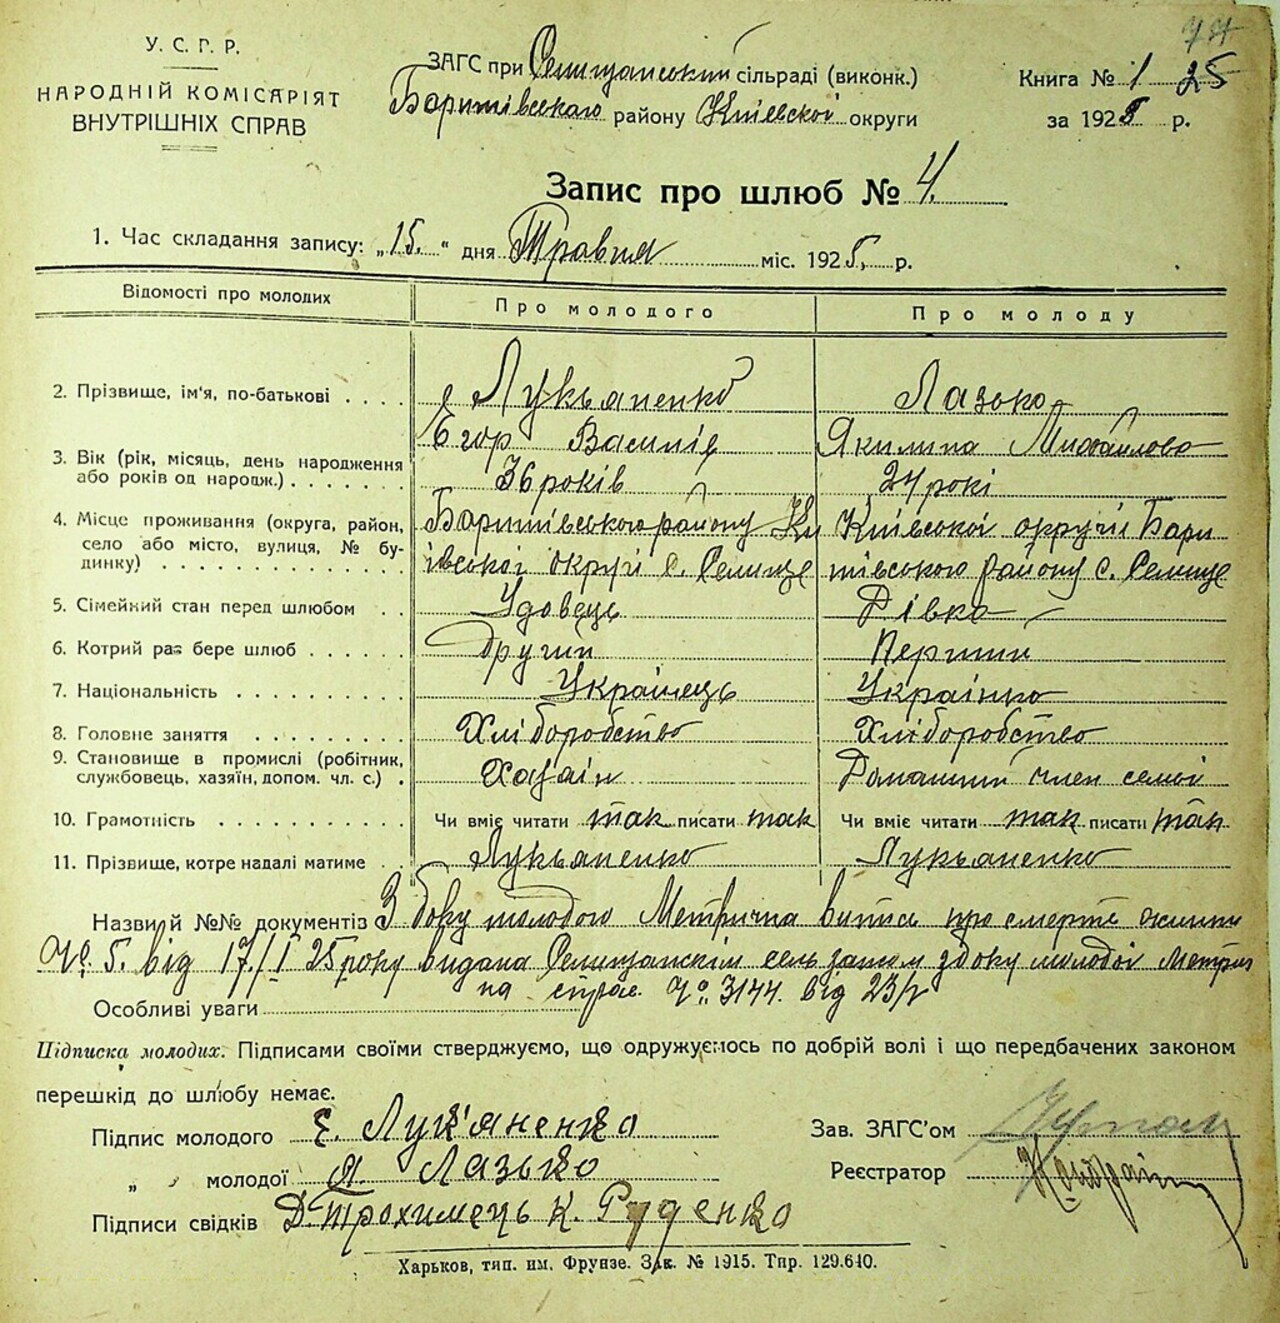 У. С. Г. Р.
НАРОДНІЙ КОМІСАРІЯТ
ВНУТРІШНІХ СПРАВ
ЗАГС при Селищанський сільраді (виконк.)
Баришівського району Київської округи
Книга № 1 25
за 1925 р.
Запис про шлюб № 4.
1. Час складання запису: „15." дня Травня міс. 1925, р.
Відомості про молодих
Про молодого
Про молоду
2. Прізвище, ім'я, по-батькові
Лукьяненко
Егор Василів
Лазько
Якилина Михайлова
3. Вік (рік, місяць, день народження
або років од нарояж.)
36 років
24 рокі
4. Місце проживання (округа, район,
село або місто, вулиця, № бу-
динку)
Баришівського району Ки
івської округі с. Селище
Київської округі Бари
шівського району с. Селище
5. Сімейний стан перед шлюбом
Удовець
Дівка
6. Котрий раз бере шлюб
Другий
Перший
7. Національність
Українець
Українка
8. Головне заняття
Хліборобство
Хліборобство
9. Становище в промислі (робітник,
службовець, хазяїн, допом. чл. с.)
Хазаін
Домашний член семьі
10. Грамотність
Чи вміє читати так писати так
Чи вміє читати так писати так
11. Прізвище, котре надалі матиме
Лукьяненко
Лукьяненко
Назви й №№ документів З боку молодого Метрична витись про смерть
№ 5. від 17/I 25 року видана Селищанскім збоку молодоі Метрич
на № 3144. від 23/
Особливі уваги
Підписка молодих. Підписами своїми стверджуємо, що одружуємось по добрій волі і що передбачених законом
перешкід до шлюбу немає.
Підпис молодого Є. Лук'яненко
„ молодої Я. Лазько
Підписи свідків Д. Трохимець К. Руденко
Зав. ЗАГС'ом
Реєстратор
Харьков, тип. им. Фрунзе. Зак. № 1915. Тир. 129.640.